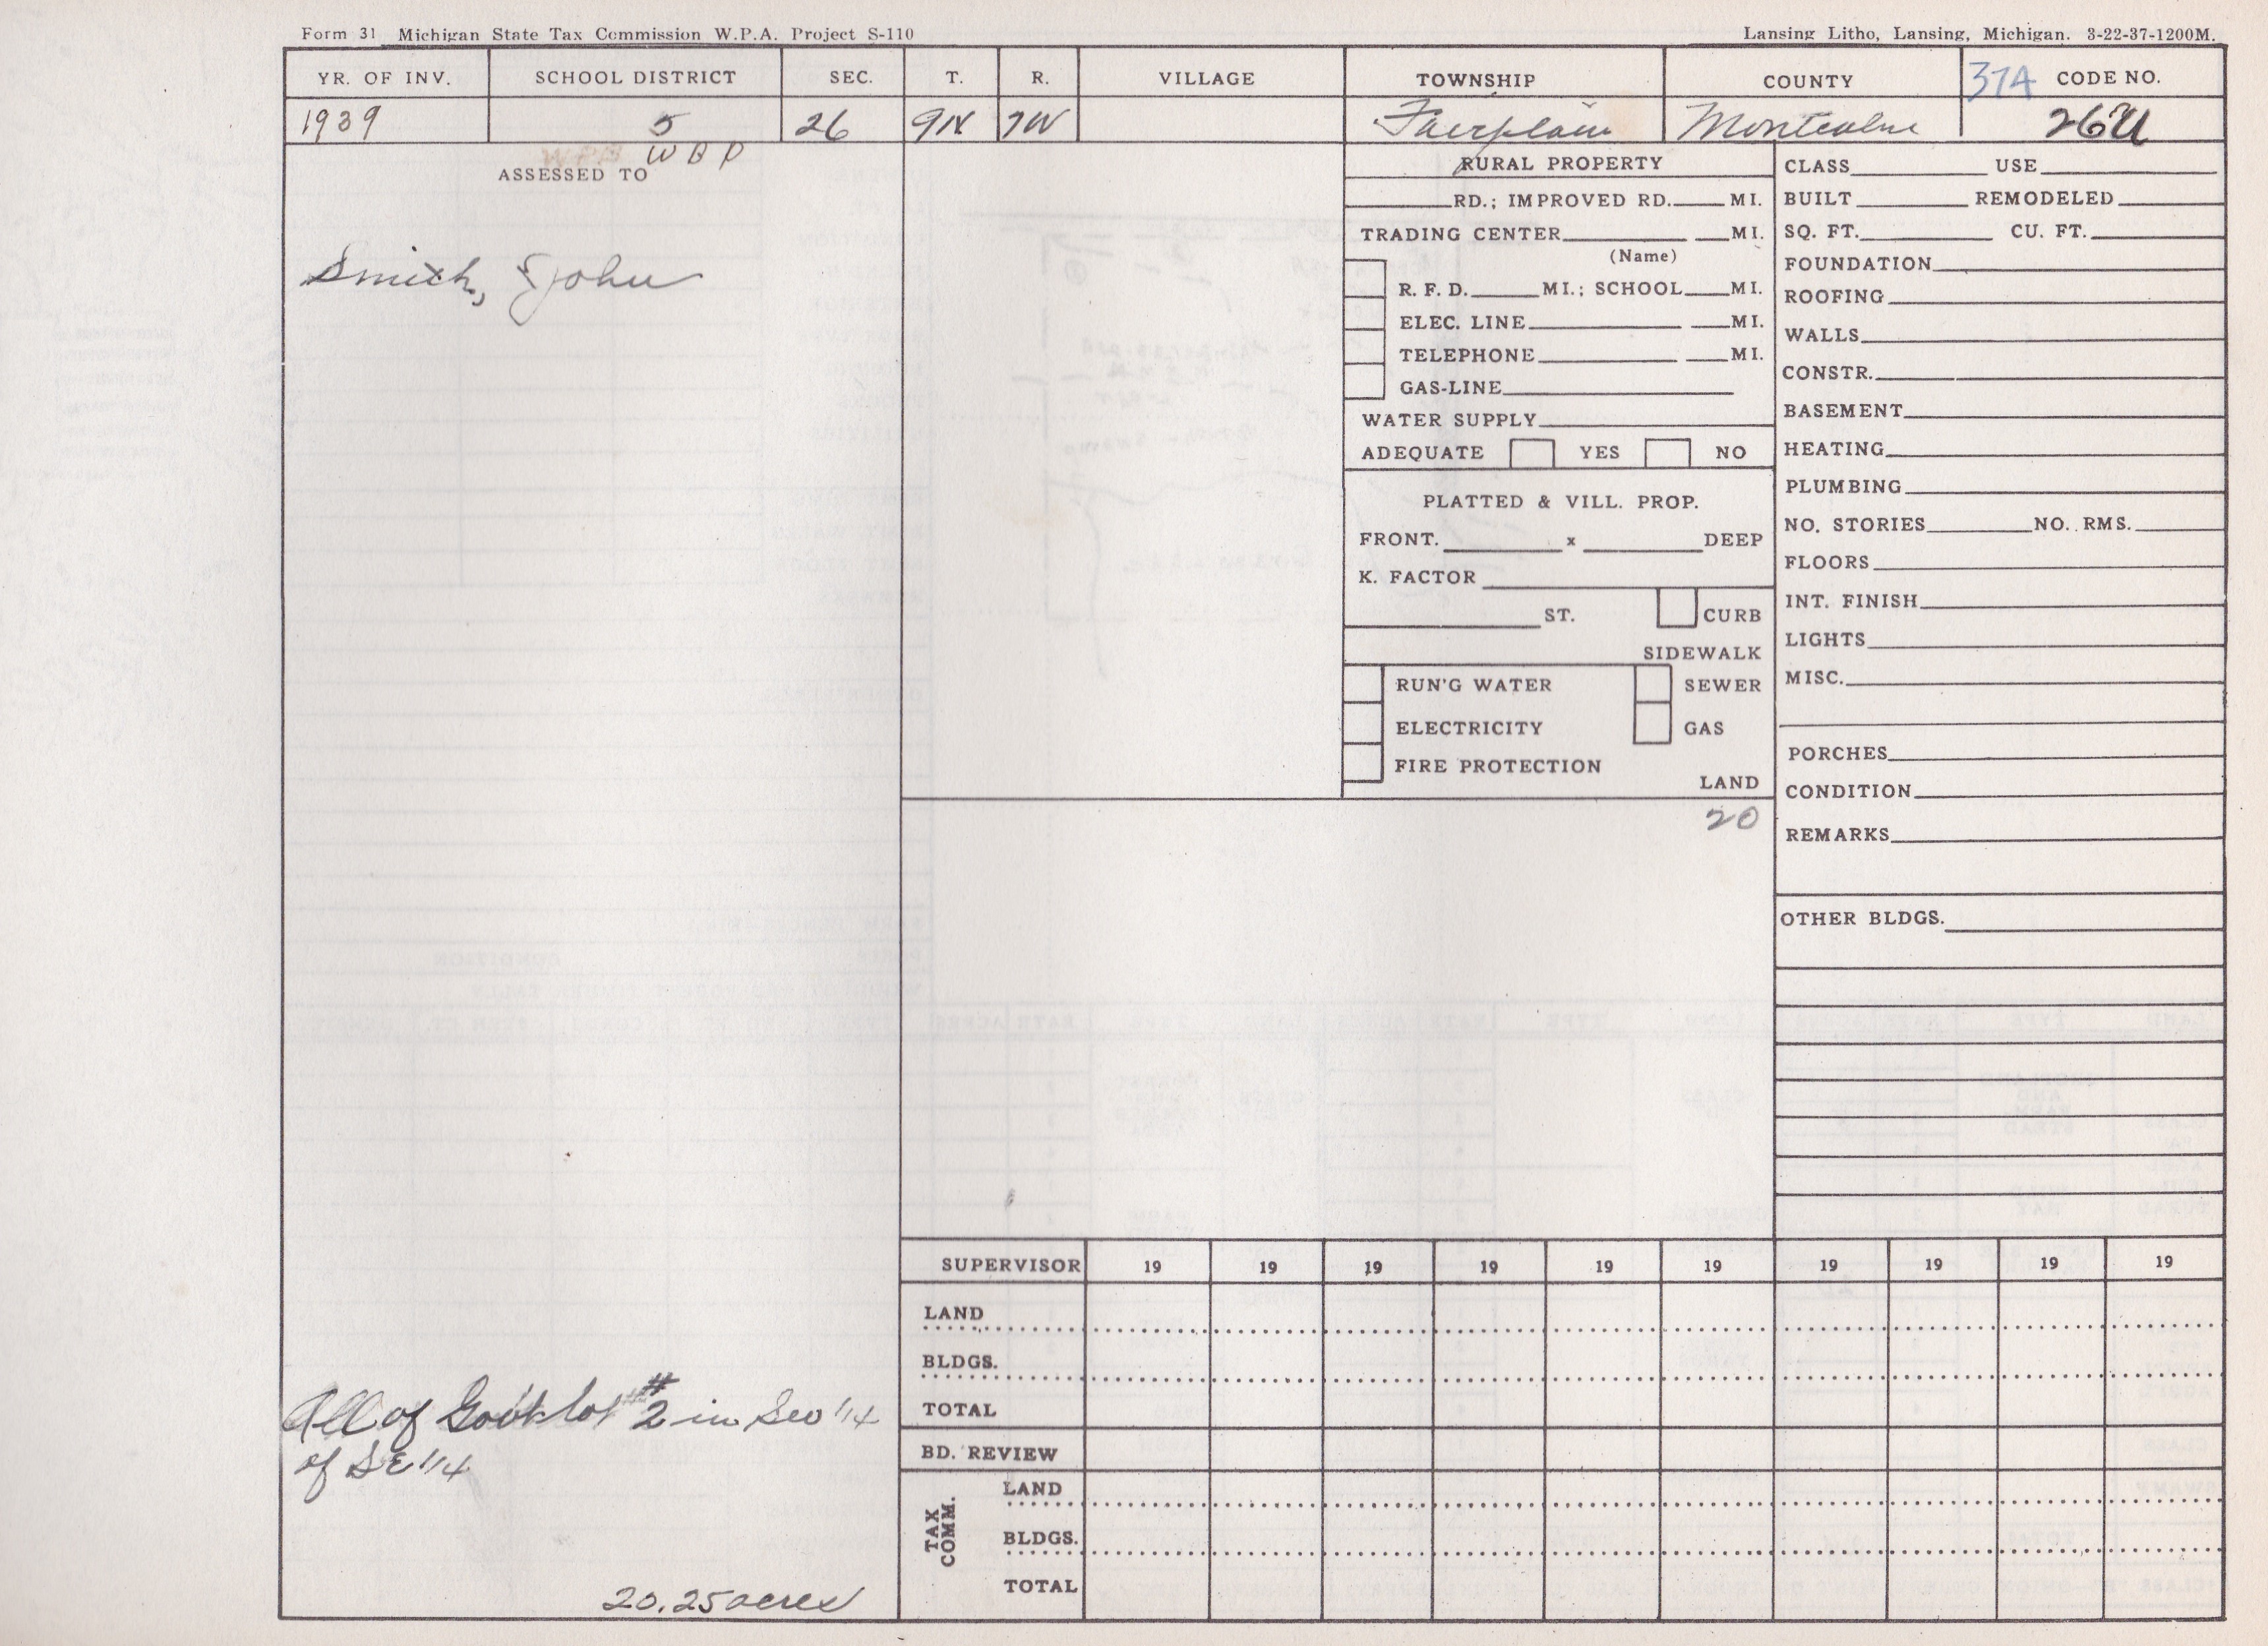 Form 31 Michigan State Tax Commission W.P.A. Project S-110
Lansing Litho, Lansing, Michigan. 3-22-37-1200M.
YR. OF INV. SCHOOL DISTRICT SEC. T. R. VILLAGE TOWNSHIP COUNTY 37A CODE NO.
1939 5 26 9N 7W Fairplain Montcalm 26U
W B P
ASSESSED TO
Smith, John
All of Gov't lot #2 in SW 1/4
of SE 1/4
20.25 acres
RURAL PROPERTY
RD.; IMPROVED RD. MI.
TRADING CENTER MI.
(Name)
R. F. D. MI.; SCHOOL MI.
ELEC. LINE MI.
TELEPHONE MI.
GAS-LINE
WATER SUPPLY
ADEQUATE YES NO
PLATTED & VILL. PROP.
FRONT. x DEEP
K. FACTOR
ST. CURB
SIDEWALK
RUN'G WATER SEWER
ELECTRICITY GAS
FIRE PROTECTION
LAND
20
CLASS USE
BUILT REMODELED
SQ. FT. CU. FT.
FOUNDATION
ROOFING
WALLS
CONSTR.
BASEMENT
HEATING
PLUMBING
NO. STORIES NO. RMS.
FLOORS
INT. FINISH
LIGHTS
MISC.
PORCHES
CONDITION
REMARKS
OTHER BLDGS.
SUPERVISOR 19 19 19 19 19 19 19 19 19 19
LAND
BLDGS.
TOTAL
BD. REVIEW
TAX COMM.
LAND
BLDGS.
TOTAL